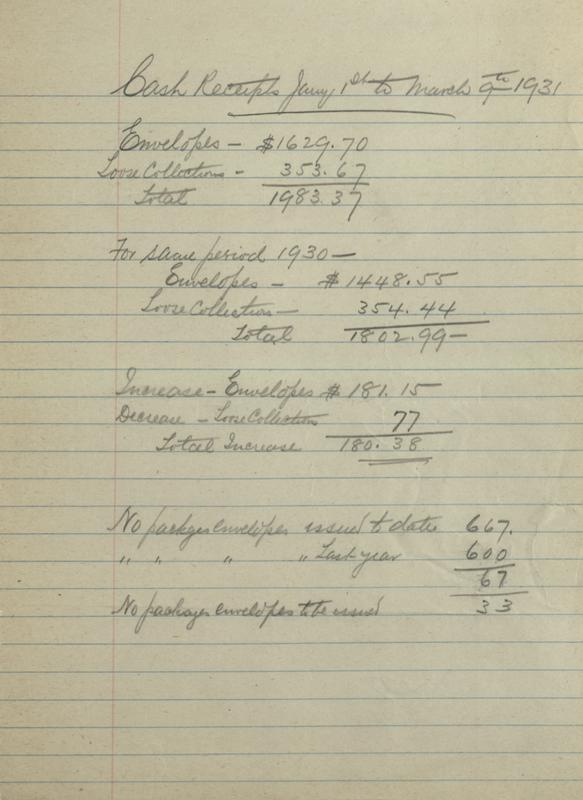 Cash Receipts Jany 1st to March 9th 1931
Envelopes - $1629.70
Loose Collections - 353.67
Total 1983.37
For same period 1930 -
Envelopes - $1448.55
Loose Collection - 354.44
Total 1802.99 -
Increase - Envelopes $181.15
Decrease - Loose Collections 77
Total Increase 180.38
No packages envelopes issued to date 667.
" " " " Last year 600
67
No packages envelopes to be issued 33